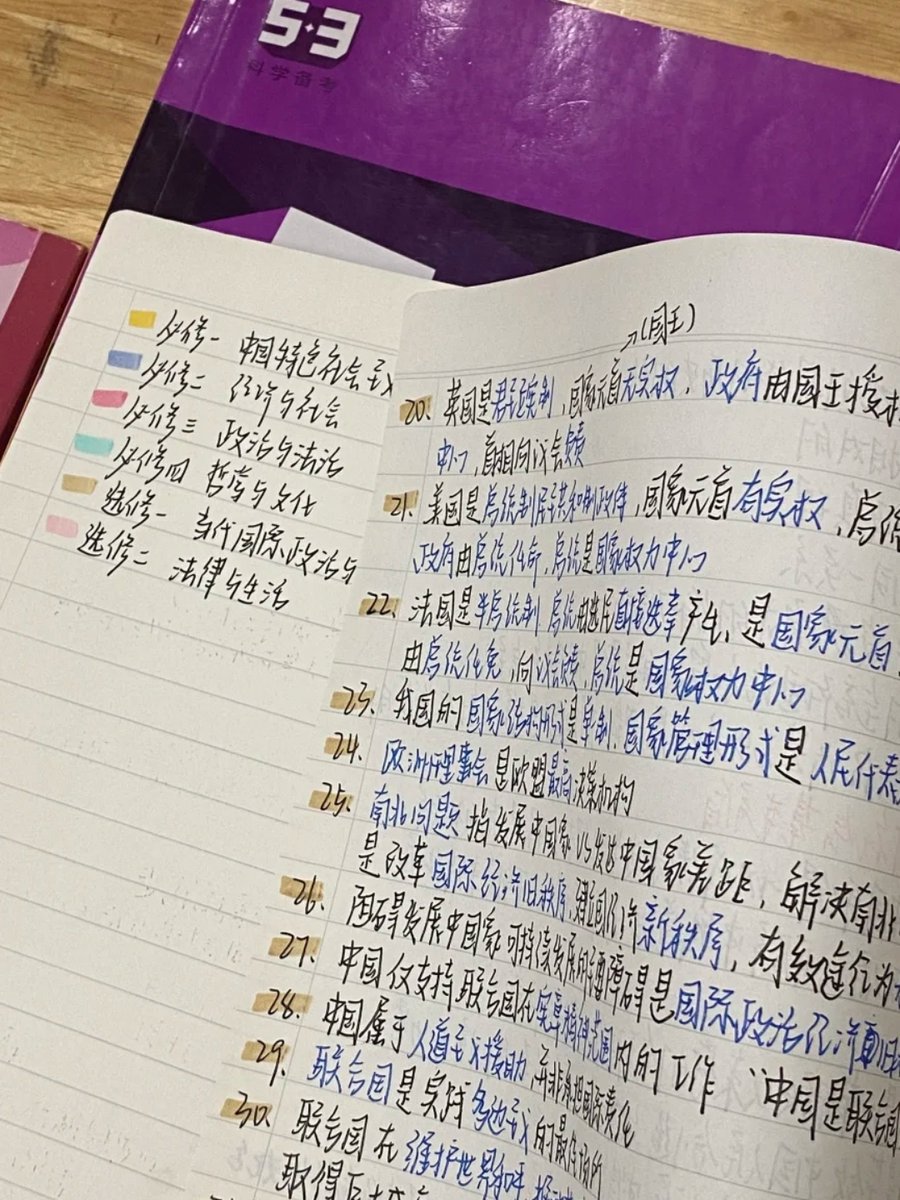 5·3
科学备考
必修一 中国特色社会主义
必修二 经济与社会
必修三 政治与法治
必修四 哲学与文化
选修一 当代国际政治与
选修二 法律与生活
→(国王)
20、英国是君主立宪制,国家元首无实权,政府由国王授权
中心,首相向议会负责
21、美国是总统制民主共和制政体,国家元首有实权,总统
政府由总统任命,总统是国家权力中心
22、法国是半总统制,总统由选民直接选举产生、是国家元首
由总统任免,向议会负责,总统是国家权力中心
23、我国的国家结构形式是单一制,国家管理形式是人民代表
24、欧洲理事会是欧盟最高决策机构
25、南北问题指发展中国家VS发达中国家差距,解决南北
是改革国际经济旧秩序,建立国际经济新秩序,有效途径为
26、阻碍发展中国家可持续发展的障碍是国际政治经济旧
27、中国仅支持联合国在宪章精神范围内的工作 "中国是联合国
28、中国属于人道主义援助,并非承担国际责任
29、联合国是实践多边主义的最佳场所
30、联合国在维护世界和平、
取得巨大